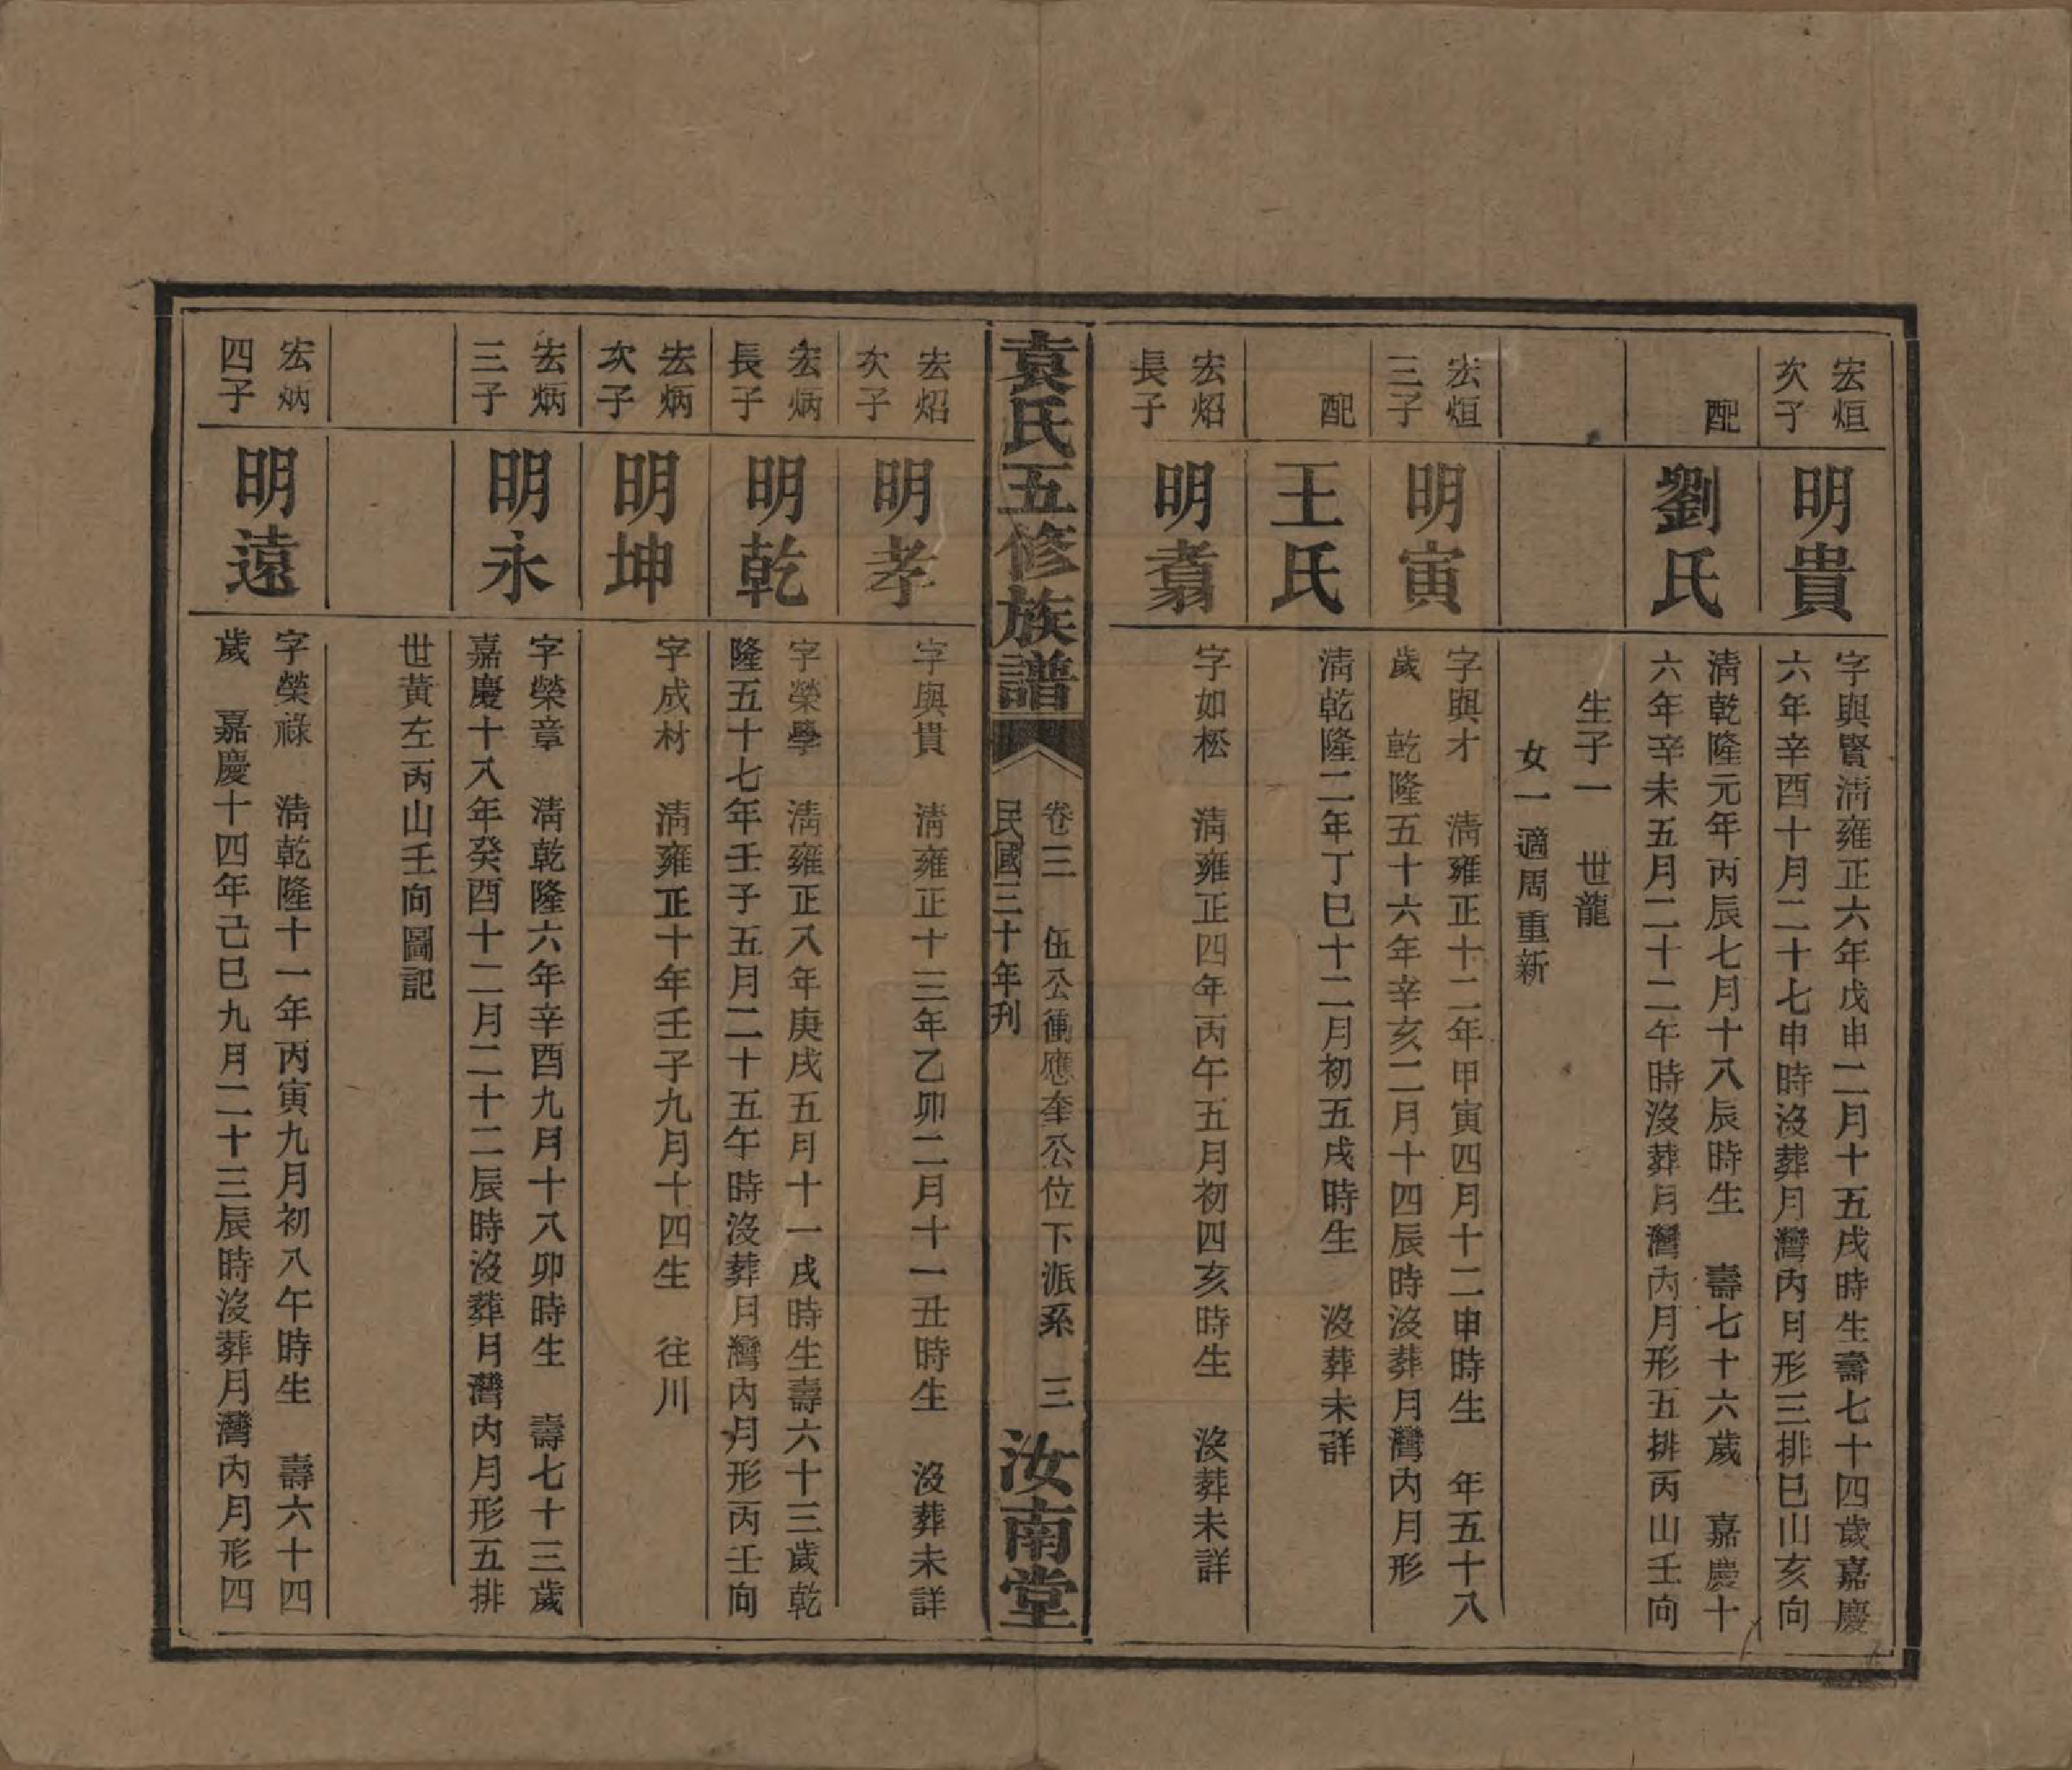 宏烜
次子
明貴
字與賢清雍正六年戊申二月十五戌時生壽七十四歲嘉慶
六年辛酉十月二十七申時沒葬月灣內月形三排巳山亥向
配
劉氏
清乾隆元年丙辰七月十八辰時生 壽七十六歲 嘉慶十
六年辛未五月二十二午時沒葬月灣內月形五排丙山壬向
生子一 世龍
女一適周重新
宏烜
三子
明寅
字與才 清雍正十二年甲寅四月十二申時生 年五十八
歲 乾隆五十六年辛亥二月十四辰時沒葬月灣內月形
配
王氏
清乾隆二年丁巳十二月初五戌時生 沒葬未詳
宏炤
長子
明翥
字如松 清雍正四年丙午五月初四亥時生 沒葬未詳
袁氏五修族譜
卷三 伍公衝應奎公位下派系 三
民國三十年刊
汝南堂
宏炤
次子
明孝
字與貴 清雍正十三年乙卯二月十一丑時生 沒葬未詳
宏炳
長子
明乾
字榮學 清雍正八年庚戌五月十一戌時生壽六十三歲乾
隆五十七年壬子五月二十五午時沒葬月灣內月形丙壬向
宏炳
次子
明坤
字成材 清雍正十年壬子九月十四生 往川
宏炳
三子
明永
字榮章 清乾隆六年辛酉九月十八卯時生 壽七十三歲
嘉慶十八年癸酉十二月二十二辰時沒葬月灣內月形五排
世黃左丙山壬向圖記
宏炳
四子
明遠
字榮祿 清乾隆十一年丙寅九月初八午時生 壽六十四
歲 嘉慶十四年己巳九月二十三辰時沒葬月灣內月形四